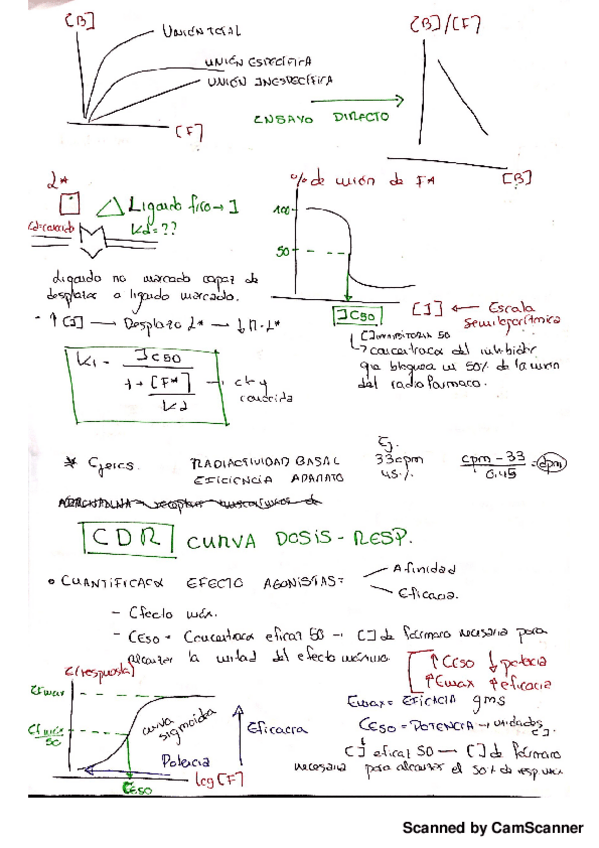 [B]
UNIÓN TOTAL
UNIÓN ESPECÍFICA
UNIÓN INESPECÍFICA
[F]
ENSAYO DIRECTO
[B]/[F]
[B]
L*
Ligando frío → I
Kd = ??
ligando no marcado capaz de
desplazar a ligando marcado.
- ↑[I] → Desplazo L* → ↓ Π·L*
% de unión de F*
100
50
IC50
[I] ← Escala
semilogarítmica
[ ] INHIBITORIA 50
→ concentracx del inhibidor
que bloquea un 50% de la unión
del radiofármaco.
Ki = IC50
1 + [F*]
Kd
→ cte y
conocida
* Ejercs.
RADIACTIVIDAD BASAL
EFICIENCIA APARATO
Ej.
33cpm
45%
cpm - 33
0.45
= dpm
CDR CURVA DOSIS-RESP.
• CUANTIFICACX EFECTO AGONISTAS =
Afinidad
Eficacia.
- Efecto máx.
- CE50 = Concentracx eficaz 50 → [ ] de fármaco necesaria para
alcanzar la mitad del efecto máximo
↑CE50 ↓potencia
↑Emax ↑eficacia
E(respuesta)
Efmax
Ef máx
50
curva
sigmoida
Potencia
CE50
log[F]
Eficacia
Emax = EFICACIA gms
CE50 = POTENCIA → unidades
[ ].
[ ] eficaz 50 → [ ] de fármaco
necesaria para alcanzar el 50% de respuesta
Scanned by CamScanner